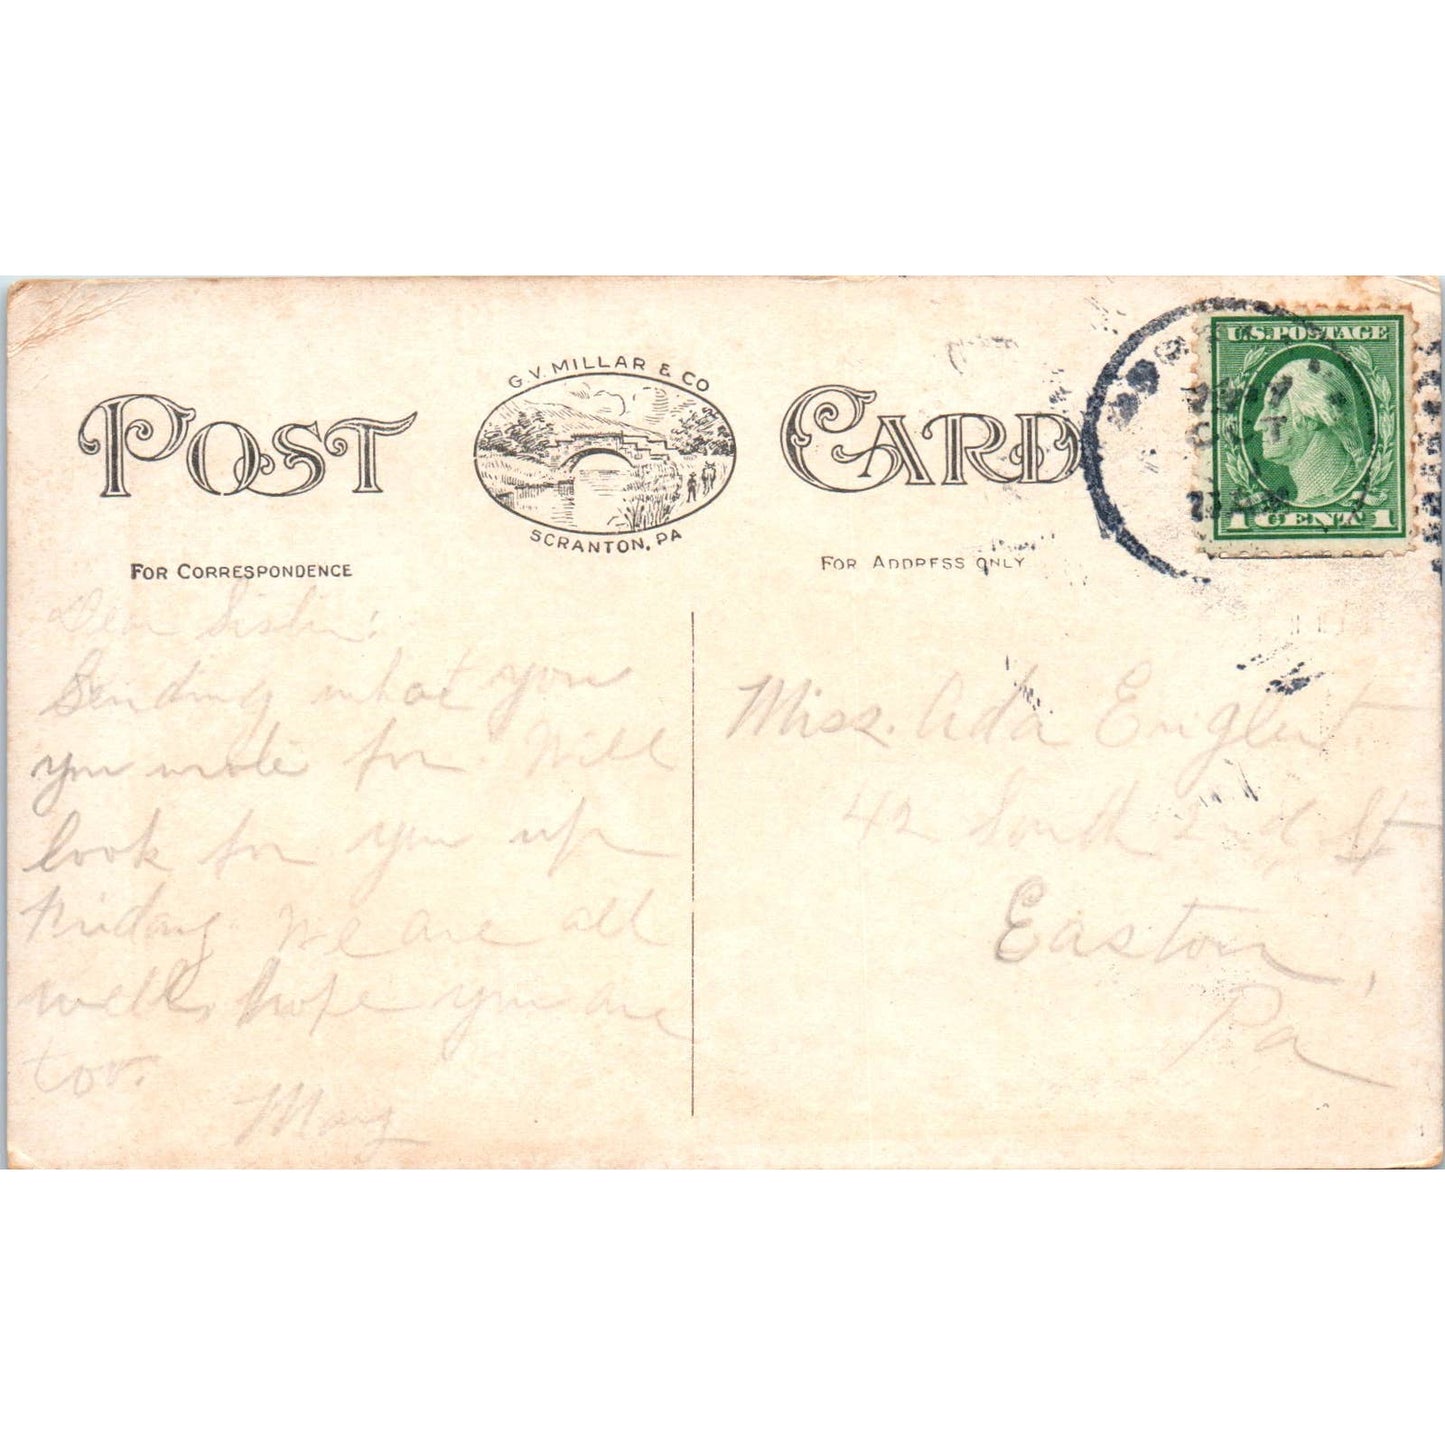 G.V. MILLAR & CO
POST CARD
SCRANTON, PA
FOR CORRESPONDENCE
FOR ADDRESS ONLY
U.S. POSTAGE
1 CENT 1
Dear Sister:
Sending what you
you wrote for. Will
look for you up
Friday. We are all
well, hope you are
too.
Mary
Miss. Ada Englert
42 South 2nd St
Easton,
Pa